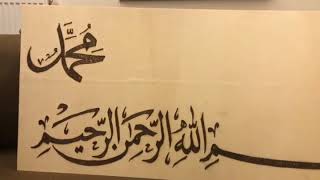 مُحَمَّد
ـسمِ اللهِ الرَّحْمٰنِ الرَّحِيمِ